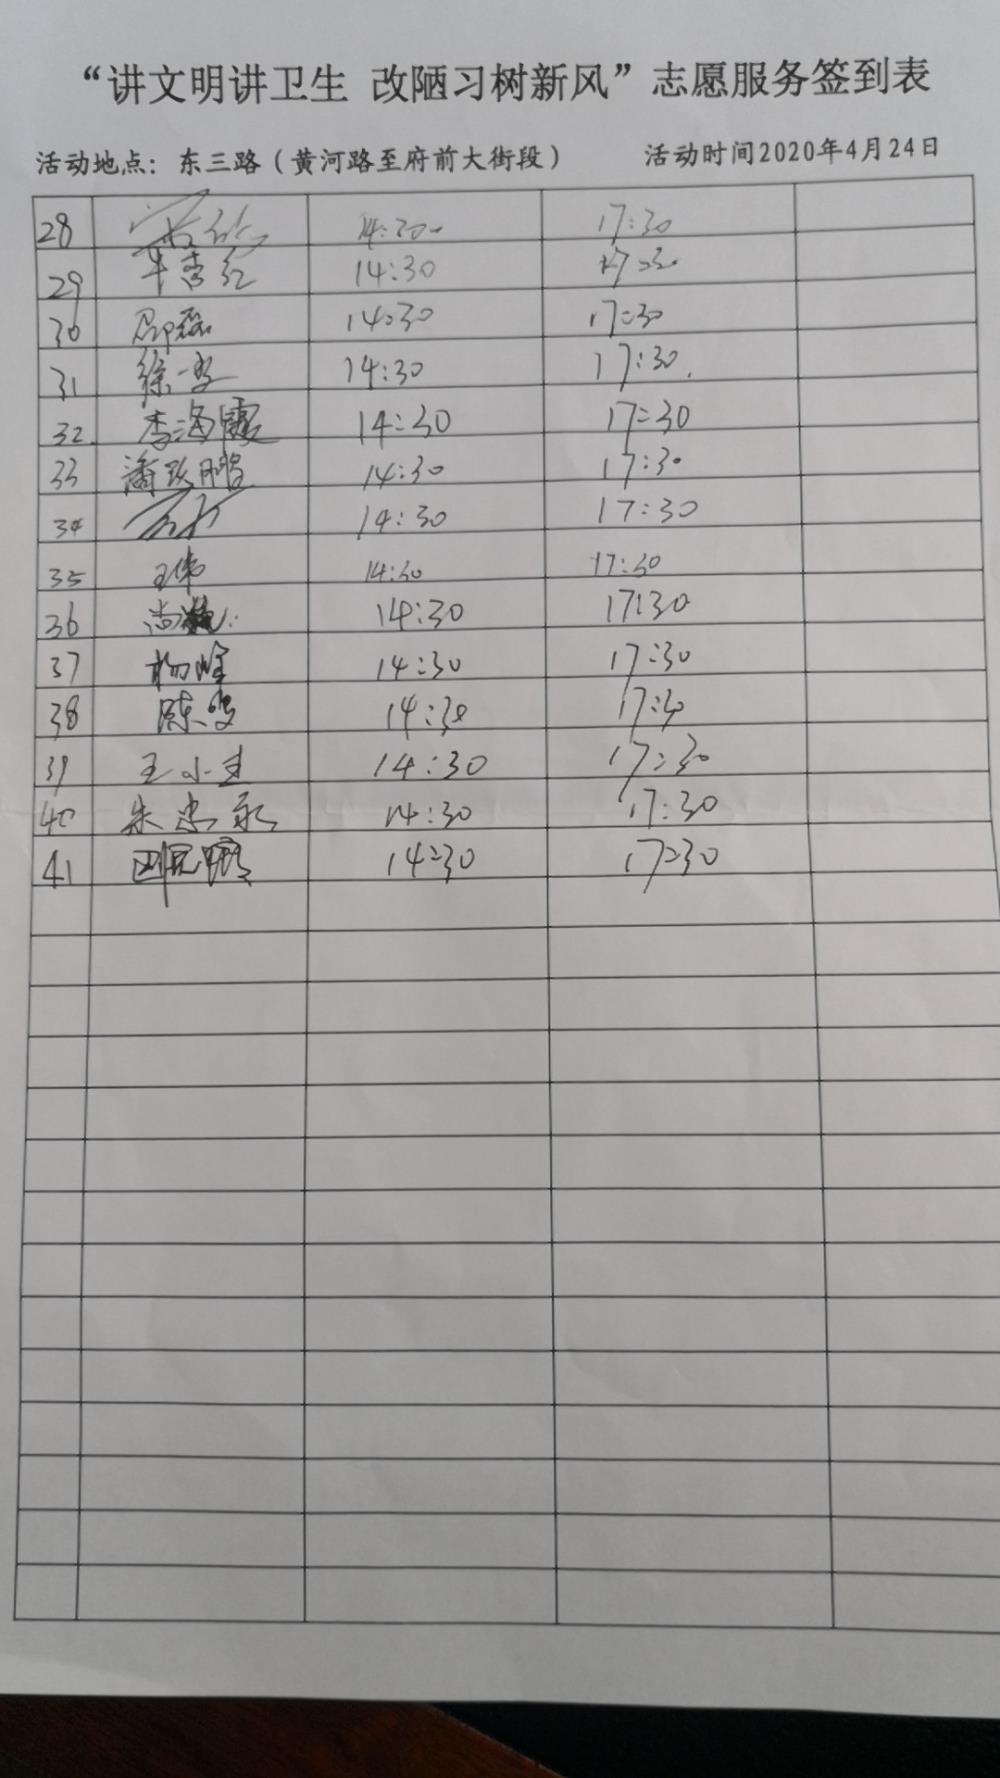 “讲文明讲卫生 改陋习树新风”志愿服务签到表
活动地点：东三路（黄河路至府前大街段） 活动时间2020年4月24日
28 17:30
29 牛杏红 14:30 17:30
30 邵磊 14:30 17:30
31 徐 14:30 17:30
32 李海霞 14:30 17:30
33 潘跃鹏 14:30 17:30
34 14:30 17:30
35 王伟 14:30 17:30
36 尚 14:30 17:30
37 杨峰 14:30 17:30
38 陈雯 14:30 17:30
39 王小圭 14:30 17:30
40 朱忠永 14:30 17:30
41 14:30 17:30